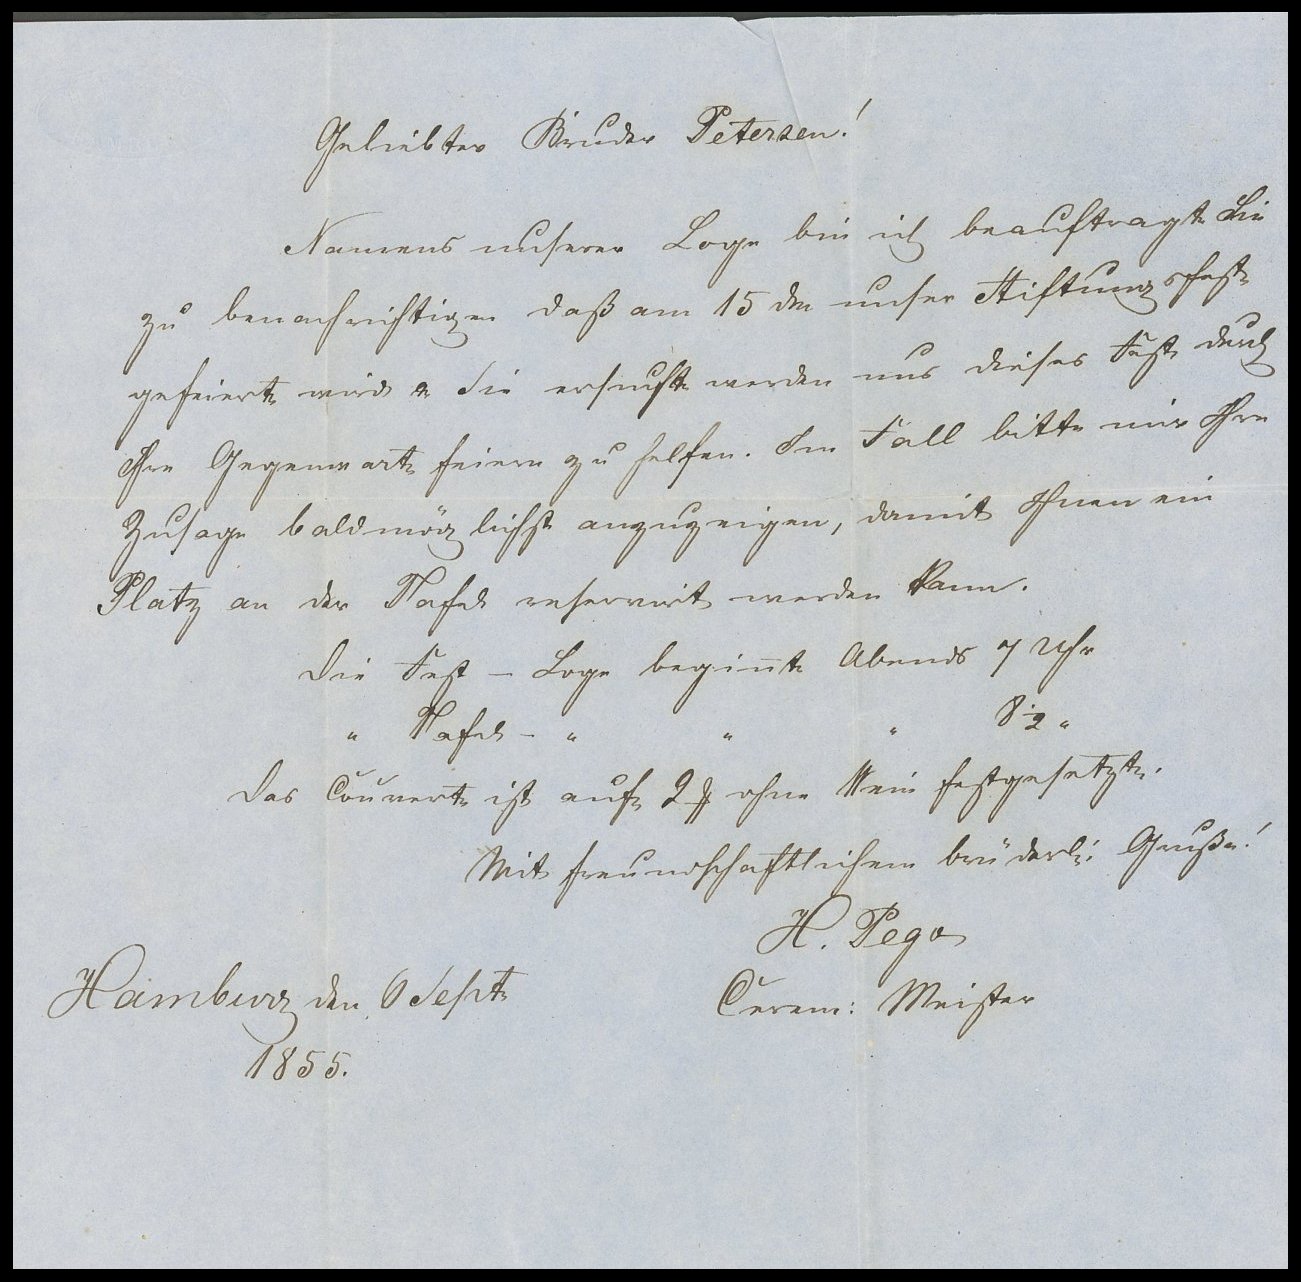 Geliebter Bruder Petersen!
Namens unserer Loge bin ich beauftragt Sie
zu benachrichtigen daß am 15 dM unser Stiftungsfest
gefeiert wird & Sie ersucht werden uns dieses Fest durch
Ihre Gegenwart feiern zu helfen. Im Fall bitte mir Ihre
Zusage baldmöglichst anzuzeigen, damit Ihnen ein
Platz an der Tafel reservirt werden kann.
Die Fest - Loge beginnt Abends 7 Uhr
" Tafel - " " " 8 1/2 "
Das Couvert ist auf 2 ohne Wein festgesetzt.
Mit freundschaftlichem brüderl: Gruße!
H. Pega
Cerem: Meister
Hamburg den 6 Sept
1855.